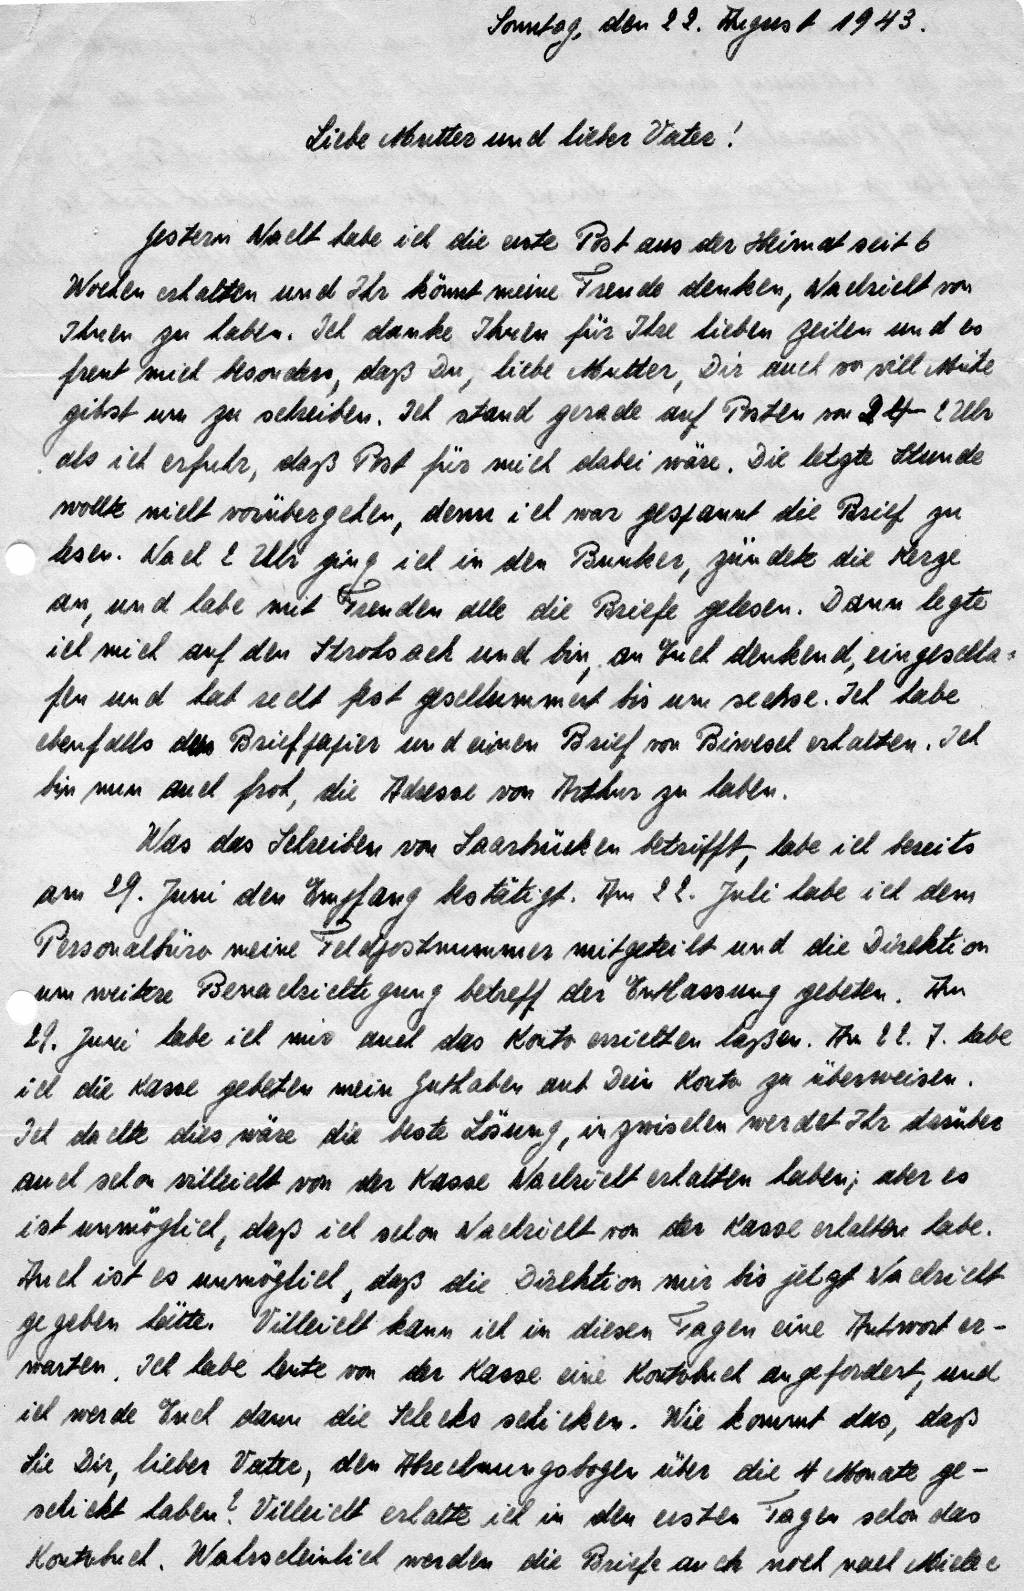 Sonntag, den 22. August 1943.
Liebe Mutter und lieber Vater!
Gestern Nacht habe ich die erste Post aus der Heimat seit 6
Wochen erhalten und Ihr könnt meine Freude denken, Nachricht von
Ihnen zu haben. Ich danke Ihnen für Ihre lieben Zeilen und es
freut mich besonders, daß Du, liebe Mutter, Dir auch so vill Mühe
gibst um zu schreiben. Ich stand gerade auf Posten von 24-2 Uhr
als ich erfuhr, daß Post für mich dabei wäre. Die letzte Stunde
wollte nicht vorübergehen, denn ich war gespannt die Brief zu
lesen. Nach 2 Uhr ging ich in den Bunker, zündete die Kerze
an, und habe mit Freuden alle die Briefe gelesen. Dann legte
ich mich auf den Strohsack und bin, an Euch denkend, eingeschla=
fen und hab recht fest geschlummert bis um sechse. Ich habe
ebenfalls das Briefpapier und einen Brief von erhalten. Ich
bin nun auch froh, die Adresse von Arthur zu haben.
Was das Schreiben von Saarbrücken betrifft, habe ich bereits
am 29. Juni den Empfang bestätigt. Am 22. Juli habe ich dem
Personalbüro meine Feldpostnummer mitgeteilt und die Direktion
um weitere Benachrichtigung betreff der Entlassung gebeten. Am
29. Juni habe ich mir auch das Konto errichten laßen. Am 22. 7. habe
ich die Kasse gebeten mein Guthaben auf Dein Konto zu überweisen.
Ich dachte dies wäre die beste Lösung, inzwischen werdet Ihr darüber
auch schon villeicht von der Kasse Nachricht erhalten haben; aber es
ist unmöglich, daß ich schon Nachricht von der Kasse erhalten habe.
Auch ist es unmöglich, daß die Direktion mir bis jetzt Nachricht
gegeben hätte. Villeicht kann ich in diesen Tagen eine Antwort er-
warten. Ich habe heute von der Kasse eine Kontobuch angefordert, und
ich werde Euch dann die Schecks schicken. Wie kommt das, daß
Sie Dir, lieber Vater, den Abrechnungsbogen über die 4 Monate ge-
schickt haben? Villeicht erhalte ich in den ersten Tagen schon das
Kontobuch. Wahrscheinlich werden die Briefe auch noch nach